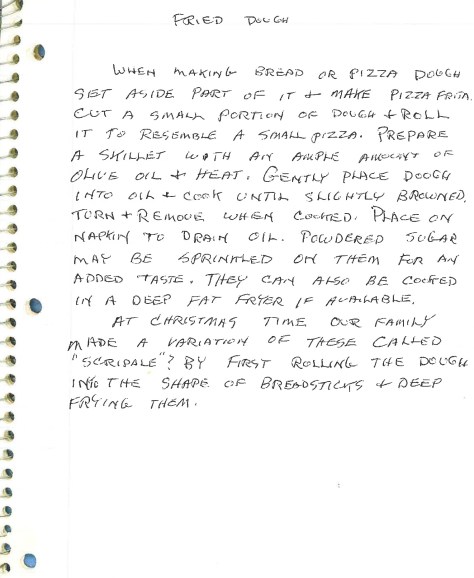 FRIED DOUGH
WHEN MAKING BREAD OR PIZZA DOUGH
SET ASIDE PART OF IT + MAKE PIZZA FRITA.
CUT A SMALL PORTION OF DOUGH + ROLL
IT TO RESEMBLE A SMALL PIZZA. PREPARE
A SKILLET WITH AN AMPLE AMOUNT OF
OLIVE OIL + HEAT. GENTLY PLACE DOUGH
INTO OIL + COOK UNTIL SLIGHTLY BROWNED.
TURN + REMOVE WHEN COOKED. PLACE ON
NAPKIN TO DRAIN OIL. POWDERED SUGAR
MAY BE SPRINKLED ON THEM FOR AN
ADDED TASTE. THEY CAN ALSO BE COOKED
IN A DEEP FAT FRYER IF AVAILABLE.
AT CHRISTMAS TIME OUR FAMILY
MADE A VARIATION OF THESE CALLED
"SCRIPALE"? BY FIRST ROLLING THE DOUGH
INTO THE SHAPE OF BREADSTICKS + DEEP
FRYING THEM.